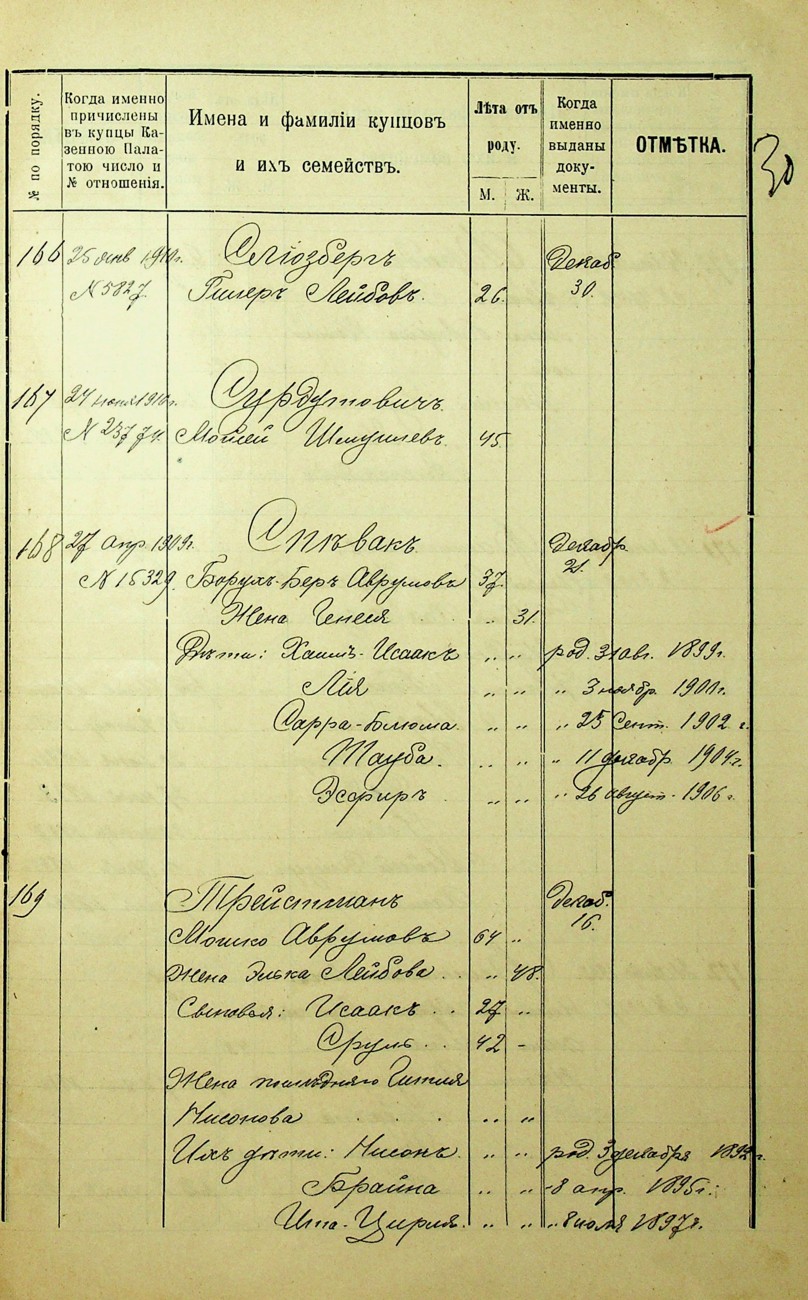 30
№ по порядку.
Когда именно причислены въ купцы Казенною Палатою число и № отношенія.
Имена и фамиліи купцовъ и ихъ семействъ.
Лѣта отъ роду.
М. Ж.
Когда именно выданы документы.
ОТМѢТКА.
166 25 янв 1910г. Слiозбергъ Декаб.
№ 5827 Гилеръ Лейбовъ. 26. 30.
167 24 1910г. Сурдутовичъ
№ Мойсей Шмулевъ. 45
168 27 апр. 1909г. Спѣвакъ Декабр.
№ 15329 Борухъ-Беръ Аврумовъ 37 21.
Жена Генеся „ 31.
Дѣти: Хаимъ-Исаакъ „ „ род. 31 авг. 1899г.
Лія „ „ „ 3 ноябр. 1901г.
Сарра-Блюма „ „ „ 25 Сент. 1902 г.
Тауба. „ „ „ 11 декабр 1904г.
Эсфирь „ „ „ 26 август. 1906г.
169 Трейстманъ Декаб.
Мошко Аврумовъ 64 „ 16.
Жена Элька Лейбова . „ 48.
Сыновья: Исаакъ . . 27 „
Сруль . . 42 -
Жена послѣдняго Гитля
Нисонова . . . „ „
Ихъ дѣти: Нисонъ. „ „ род. 3 декабря г.
Брайна „ „ - 8 апр. 1895г.
Ита-Цирля. „ „ „ 8 юля 1897г.